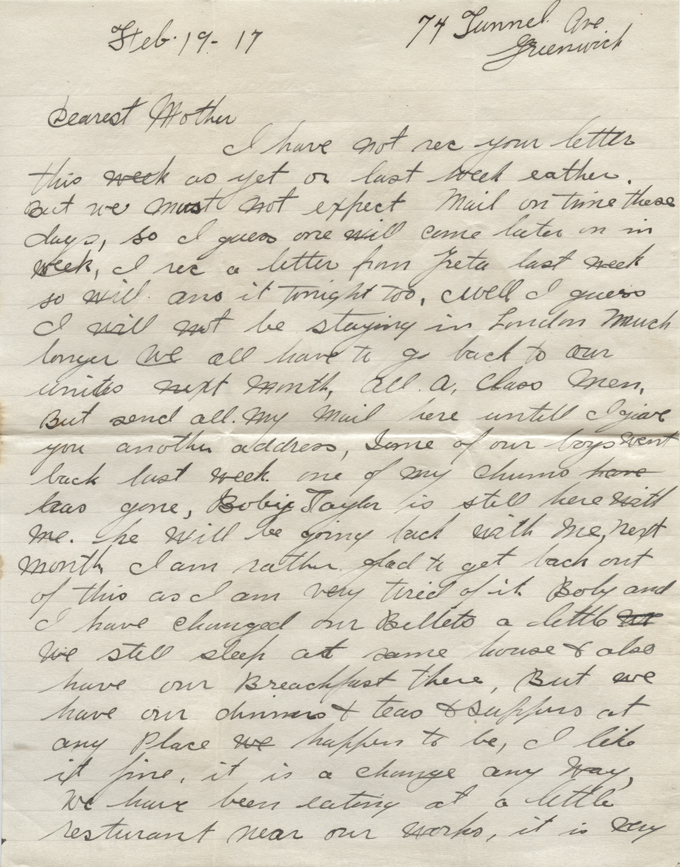 Feb. 19 - 17
74 Tunnel Ave
Greenwich
Dearest Mother
I have not rec your letter
this week as yet or last week eather.
But we must not expect Mail on time these
days, so I guess one will come later on in
week, I rec a letter from Greta last week
so will ans it tonight too, Well I guess
I will not be staying in London Much
longer We all have to go back to our
units next Month, all. A. Class Men.
But send all. My Mail here untill I give
you another address, Some of our boys went
back last week one of my chums have
has gone, Boby Taylor is still here with
me. he will be going back with Me, next
month I am rather glad to get back out
of this as I am very tired of it Boby and
I have changed our Billets a little
We still sleep at same house & also
have our Breackfast there, But we
have our dinners & teas & suppers at
any Place we happen to be, I like
it fine, it is a change any Way,
We have been eating at a little
resturant near our works, it is very